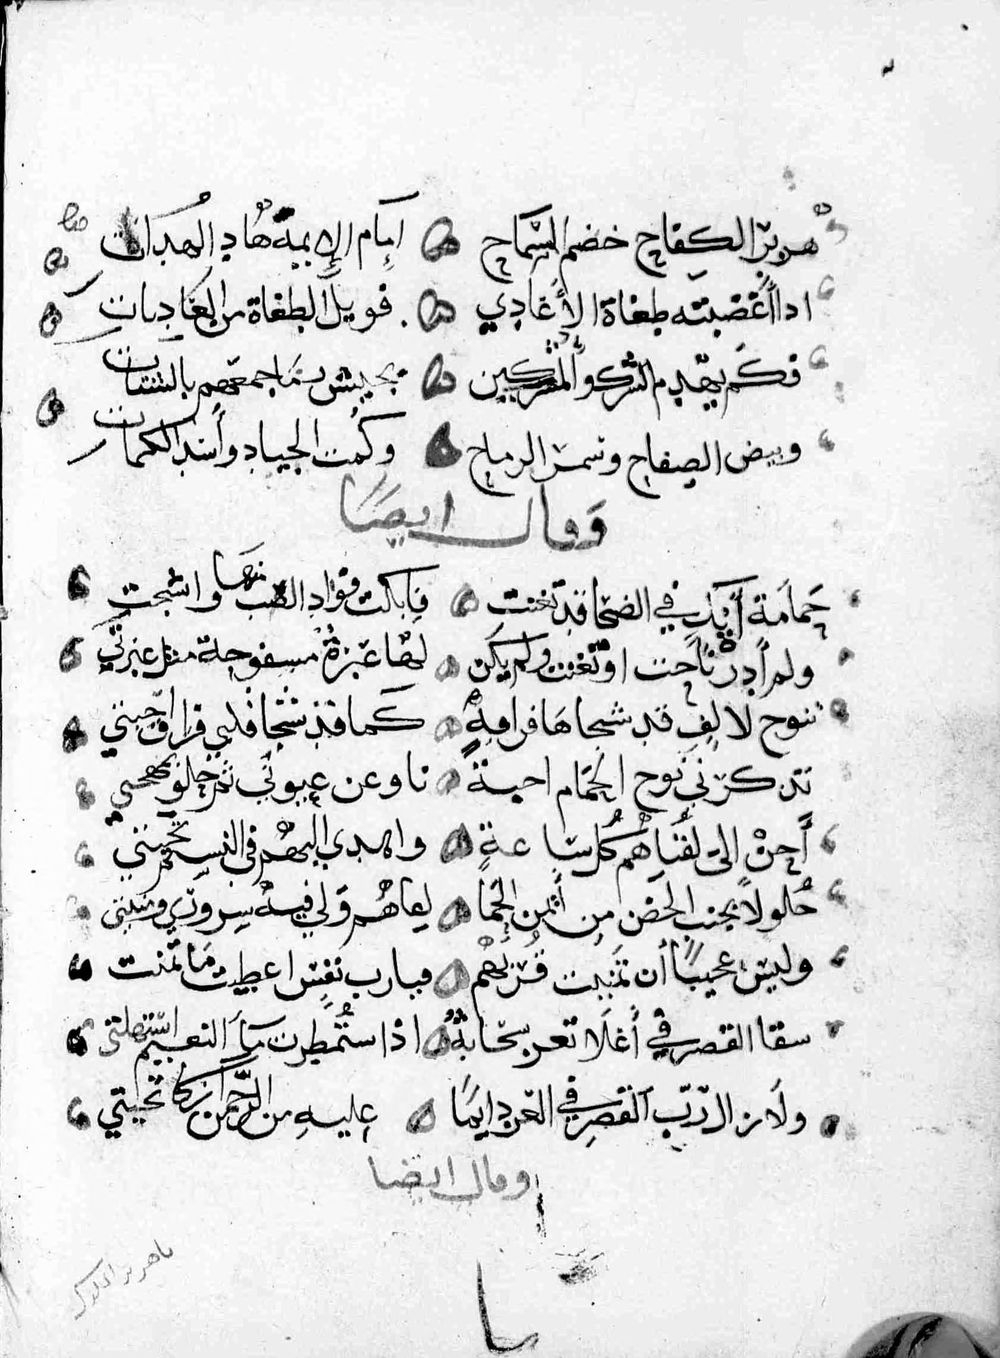 هزبر الكفاح خضم السماح امام الايمة هاد الهداة
اذا أغضبته طغاة الأعادي فويل لطغاة من العاديات
فكم يهدم الشرك والمشركين بجيش رما جمعهم بالشتات
وبيض الصفاح وسمر الرماح وكمت الجياد وأسد الكمات
وقال ايضًا
حمامة أيك في الضحا قد تغنت فابكت فواد الصب منها واشجت
ولم أدر ناحت او تغنت ولم يكن لها عبرة مسفوحة مثل عبرتي
تنوح لالف قد شجاها فراقه كما قد شجا قلبي فراق احبتي
تذكرني نوح الحمام احبة ناو عن عيوني ثم حلو بمهجتي
أحن الى لقياهم كل ساعة واهدي اليهم في النسيم تحيتي
حلولاً بجنب الحصن من أيمن الحما لقاهم ولي فيه سروري ومنيتي
وليس عجيبًا أن تمنيت قربهم فيارب نفس اعطيت ما تمنت
سقا القصر في أعلا تعز سحابة اذا ستمطرت مآ النعيم استهلت
ولا زال رب القصر في العز دايما عليه من الرحمن ازكا تحيتي
وقال ايضا